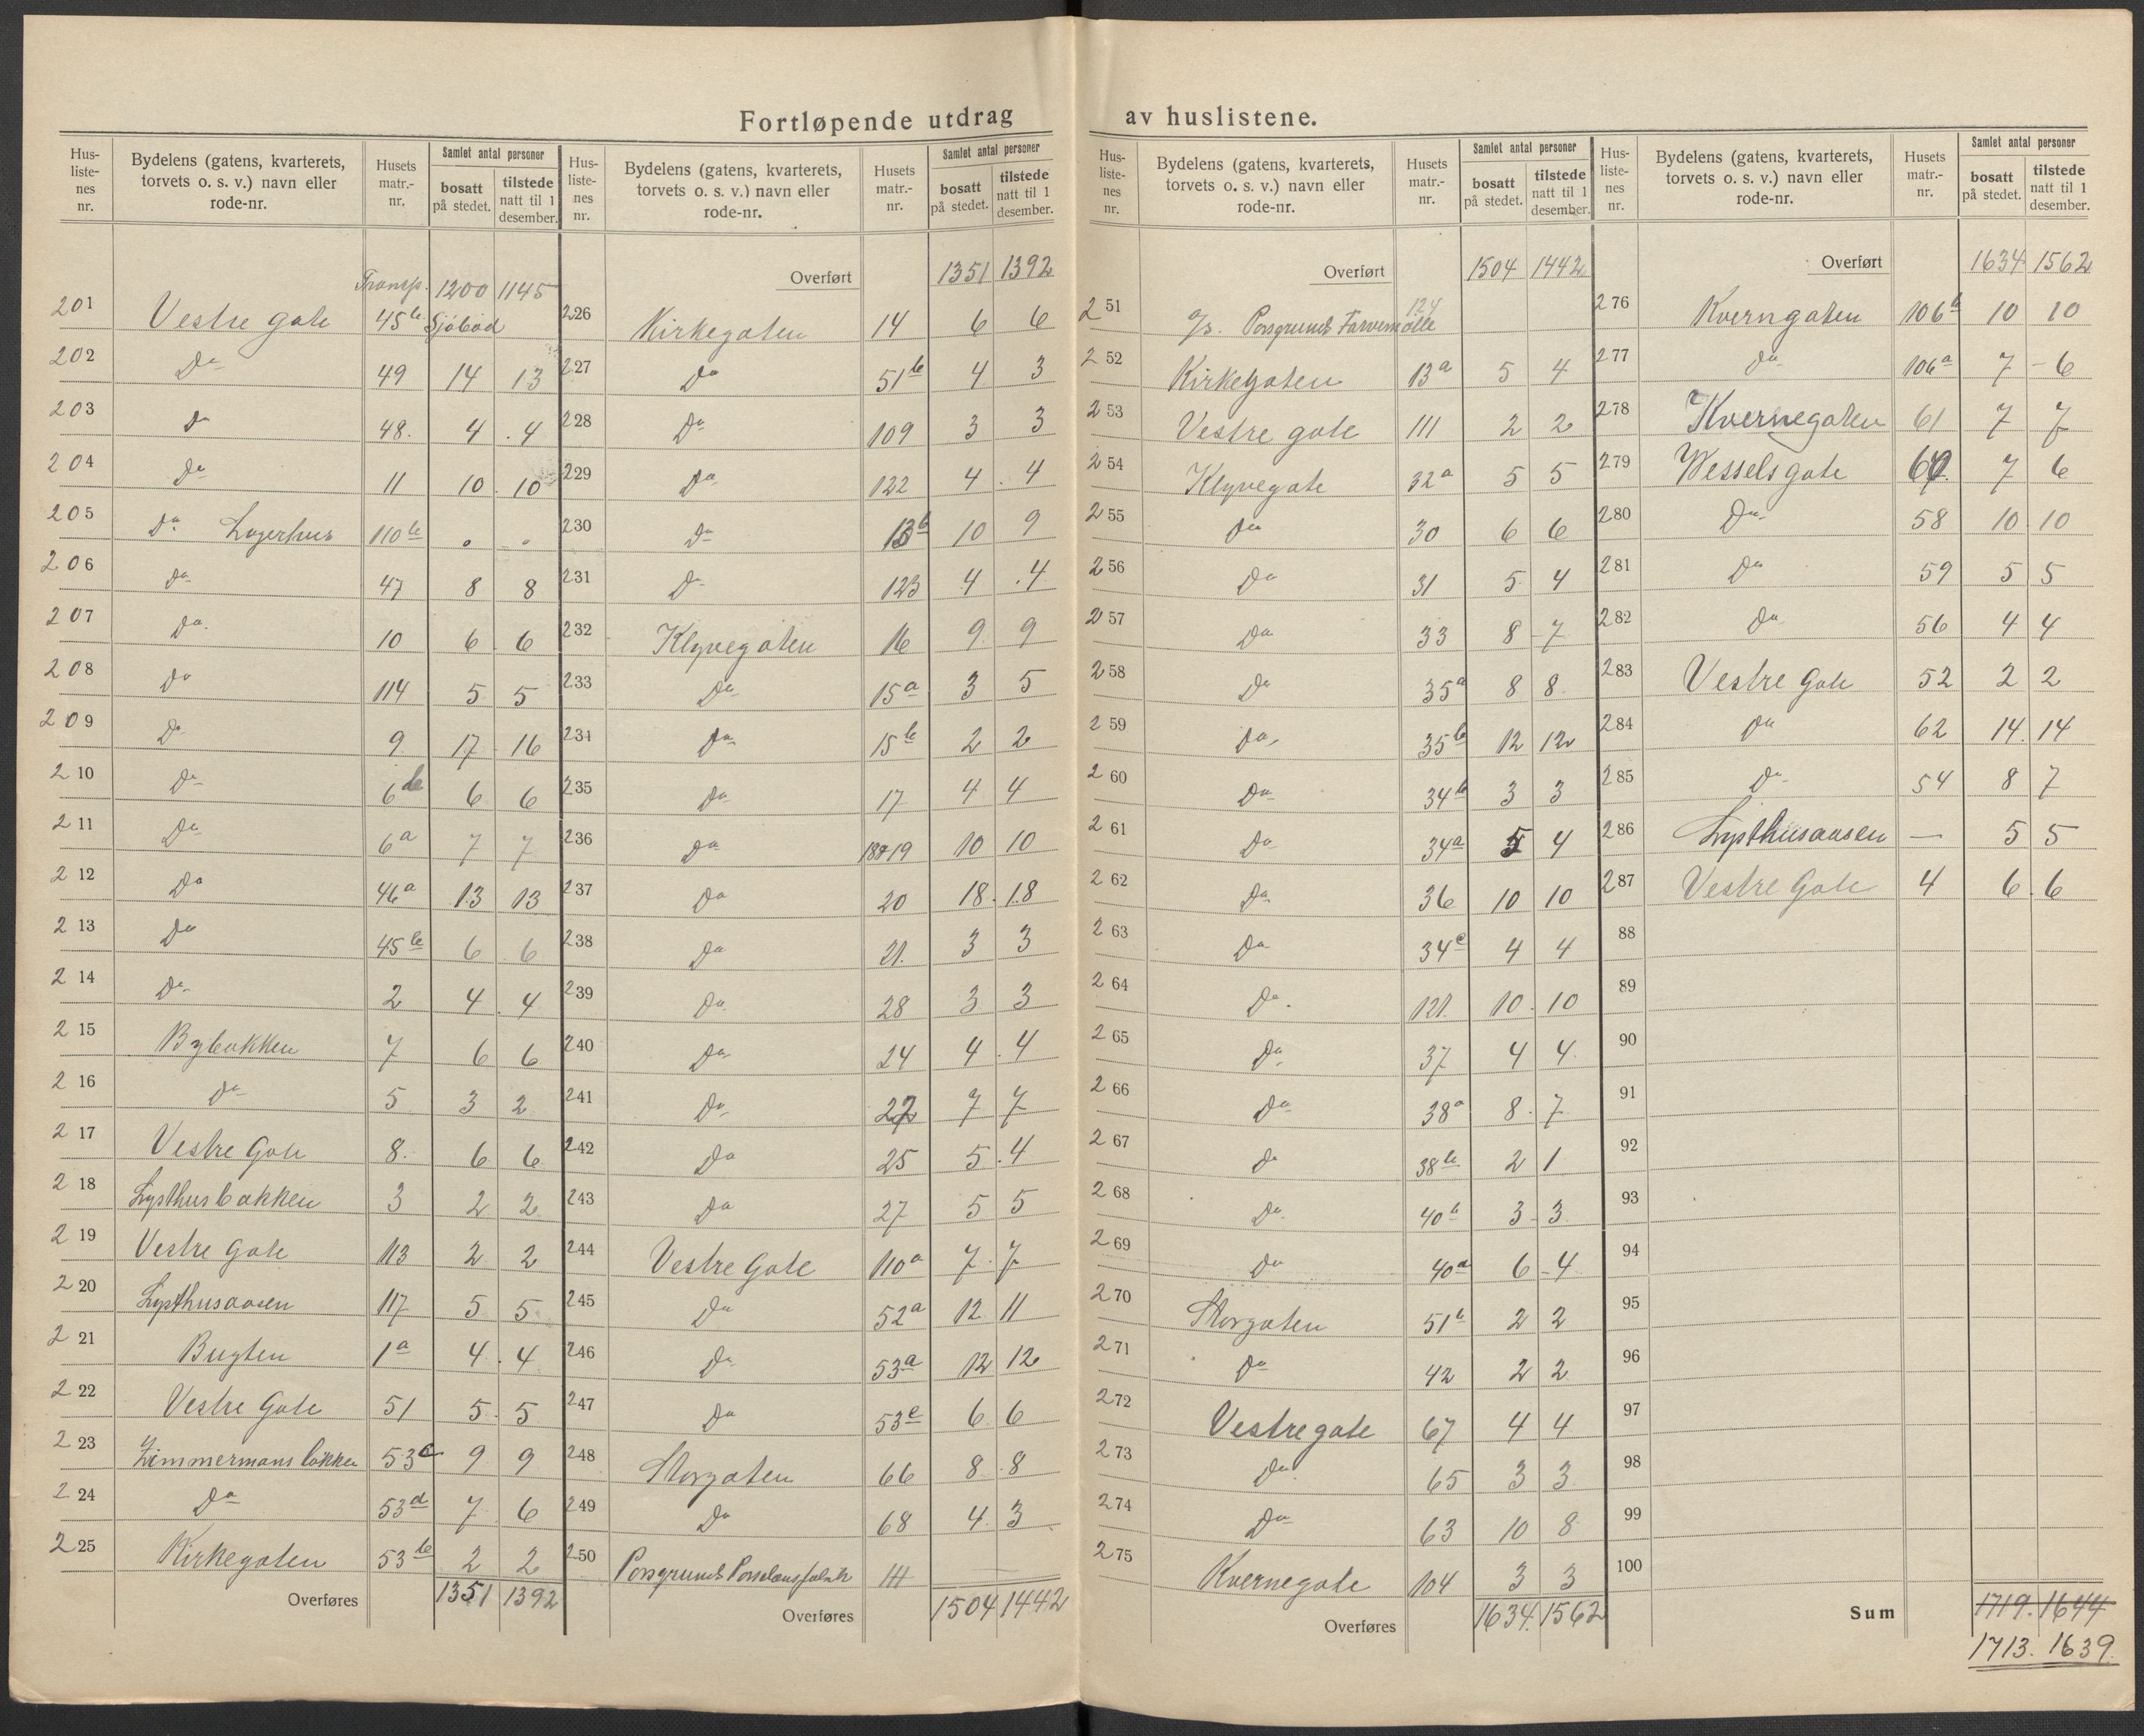 Fortløpende utdrag av huslistene.
Hus-listenes nr. | Bydelens (gatens, kvarterets, torvets o. s. v.) navn eller rode-nr. | Husets matr.-nr. | Samlet antal personer | bosatt på stedet. | tilstede natt til 1 desember.
Transp. 1200 1145
201 Vestre gate 45b Sjøbod
202 Do 49 14 13
203 Do 48. 4 4
204 Do 11 10 10
205 Do Lagerhus 110b
206 Do 47 8 8
207 Do. 10 6 6
208 Do 114 5 5
209 Do 9 17 16
210 Do 6b 6 6
211 Do 6a 7 7
212 Do 46a 13 13
213 Do 45b 6 6
214 Do 2 4 4
215 Bybakken 7 6 6
216 Do 5 3 2
217 Vestre Gate 8. 6 6
218 Lysthusbakken 3 2 2
219 Vestre Gate 113 2 2
220 Lysthusaasen 117 5 5
221 Bugten 1a 4 4
222 Vestre Gate 51 5 5
223 Zimmermans løkken 53c 9 9
224 Do 53d 7 6
225 Kirkegaten 53b 2 2
Overføres 1351 1392
Hus-listenes nr. | Bydelens (gatens, kvarterets, torvets o. s. v.) navn eller rode-nr. | Husets matr.-nr. | Samlet antal personer | bosatt på stedet. | tilstede natt til 1 desember.
Overført 1351 1392
226 Kirkegaten 14 6 6
227 Do 51b 4 3
228 Do 109 3 3
229 Do 122 4 4
230 Do 13b 10 9
231 Do 123 4 4
232 Klyvegaten 16 9 9
233 Do 15a 3 5
234 Do 15b 2 2
235 Do 17 4 4
236 Do 18&19 10 10
237 Do 20 18 18
238 Do 21. 3 3
239 Do 28 3 3
240 Do 24 4 4
241 Do 7 7
242 Do 25 5 4
243 Do 27 5 5
244 Vestre Gate 110a 7 7
245 Do 52a 12 11
246 Do 53a 12 12
247 Do 53e 6 6
248 Storgaten 66 8 8
249 Do 68 4 3
250 Porsgrunds Porselænsfabrik
Overføres 1504 1442
Hus-listenes nr. | Bydelens (gatens, kvarterets, torvets o. s. v.) navn eller rode-nr. | Husets matr.-nr. | Samlet antal personer | bosatt på stedet. | tilstede natt til 1 desember.
Overført 1504 1442
251 A/s. Porsgrunds Farvemølle 124
252 Kirkegaten 13a 5 4
253 Vestre gate 111 2 2
254 Klyvegate 32a 5 5
255 Do 30 6 6
256 Do 31 5 4
257 Do 33 8 7
258 Do 35a 8 8
259 Do, 35b 12 12
260 Do 34b 3 3
261 Do 34a 5 4
262 Do 36 10 10
263 Do 34c 4 4
264 Do. 121. 10 10
265 Do 37 4 4
266 Do 38a 8 7
267 do 38b 2 1
268 Do. 40b 3 3
269 Do 40a 6 4
270 Storgaten 51b 2 2
271 Do 42 2 2
272 Vestregate 67 4 4
273 Do 65 3 3
274 Do 63 10 8
275 Kvernegate 104 3 3
Overføres 1634. 1562
Hus-listenes nr. | Bydelens (gatens, kvarterets, torvets o. s. v.) navn eller rode-nr. | Husets matr.-nr. | Samlet antal personer | bosatt på stedet. | tilstede natt til 1 desember.
Overført 1634 1562
276 Kverngaten 106b 10 10
277 do 106a 7 6
278 Kvernegaten 61 7 7
279 Wesselsgate 7 6
280 Do 58 10 10
281 Do 59 5 5
282 Do 56 4 4
283 Vestre Gate 52 2 2
284 Do 62 14 14
285 Do 54 8 7
286 Lysthusaasen — 5 5
287 Vestre Gate 4 6 6
88
89
90
91
92
93
94
95
96
97
98
99
100
Sum 1719. 1644
1713. 1639.